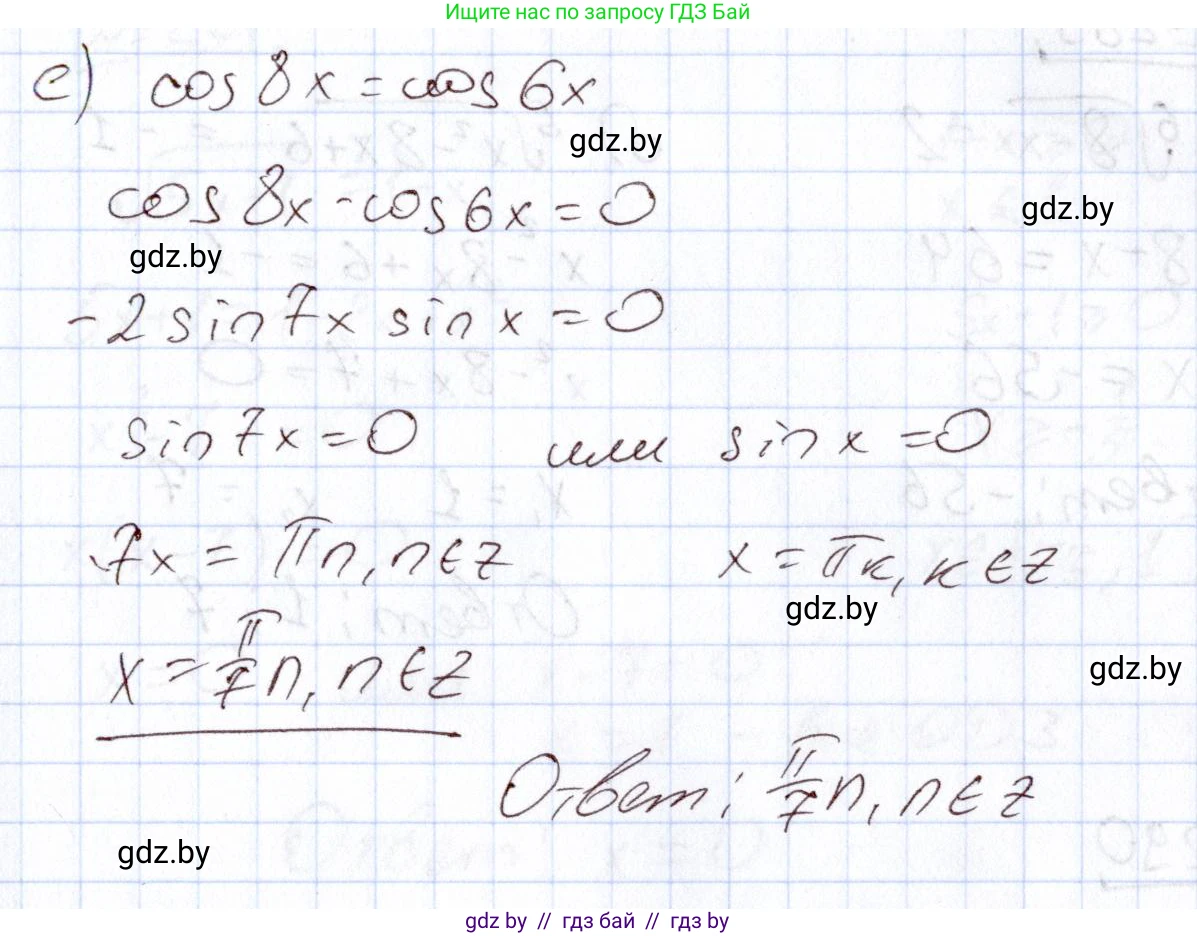 Ищите нас по запросу ГДЗ Бай
е) cos 8x = cos 6x
gdz.by
cos 8x - cos 6x = 0
gdz.by
gdz.by
-2 sin 7x sin x = 0
sin 7x = 0 или sin x = 0
7x = πn, n ∈ z x = πк, к ∈ z
gdz.by
x = π/7 n, n ∈ z
gdz.by
Ответ: π/7 n, n ∈ z
gdz.by
gdz by // гдз бай // гдз by